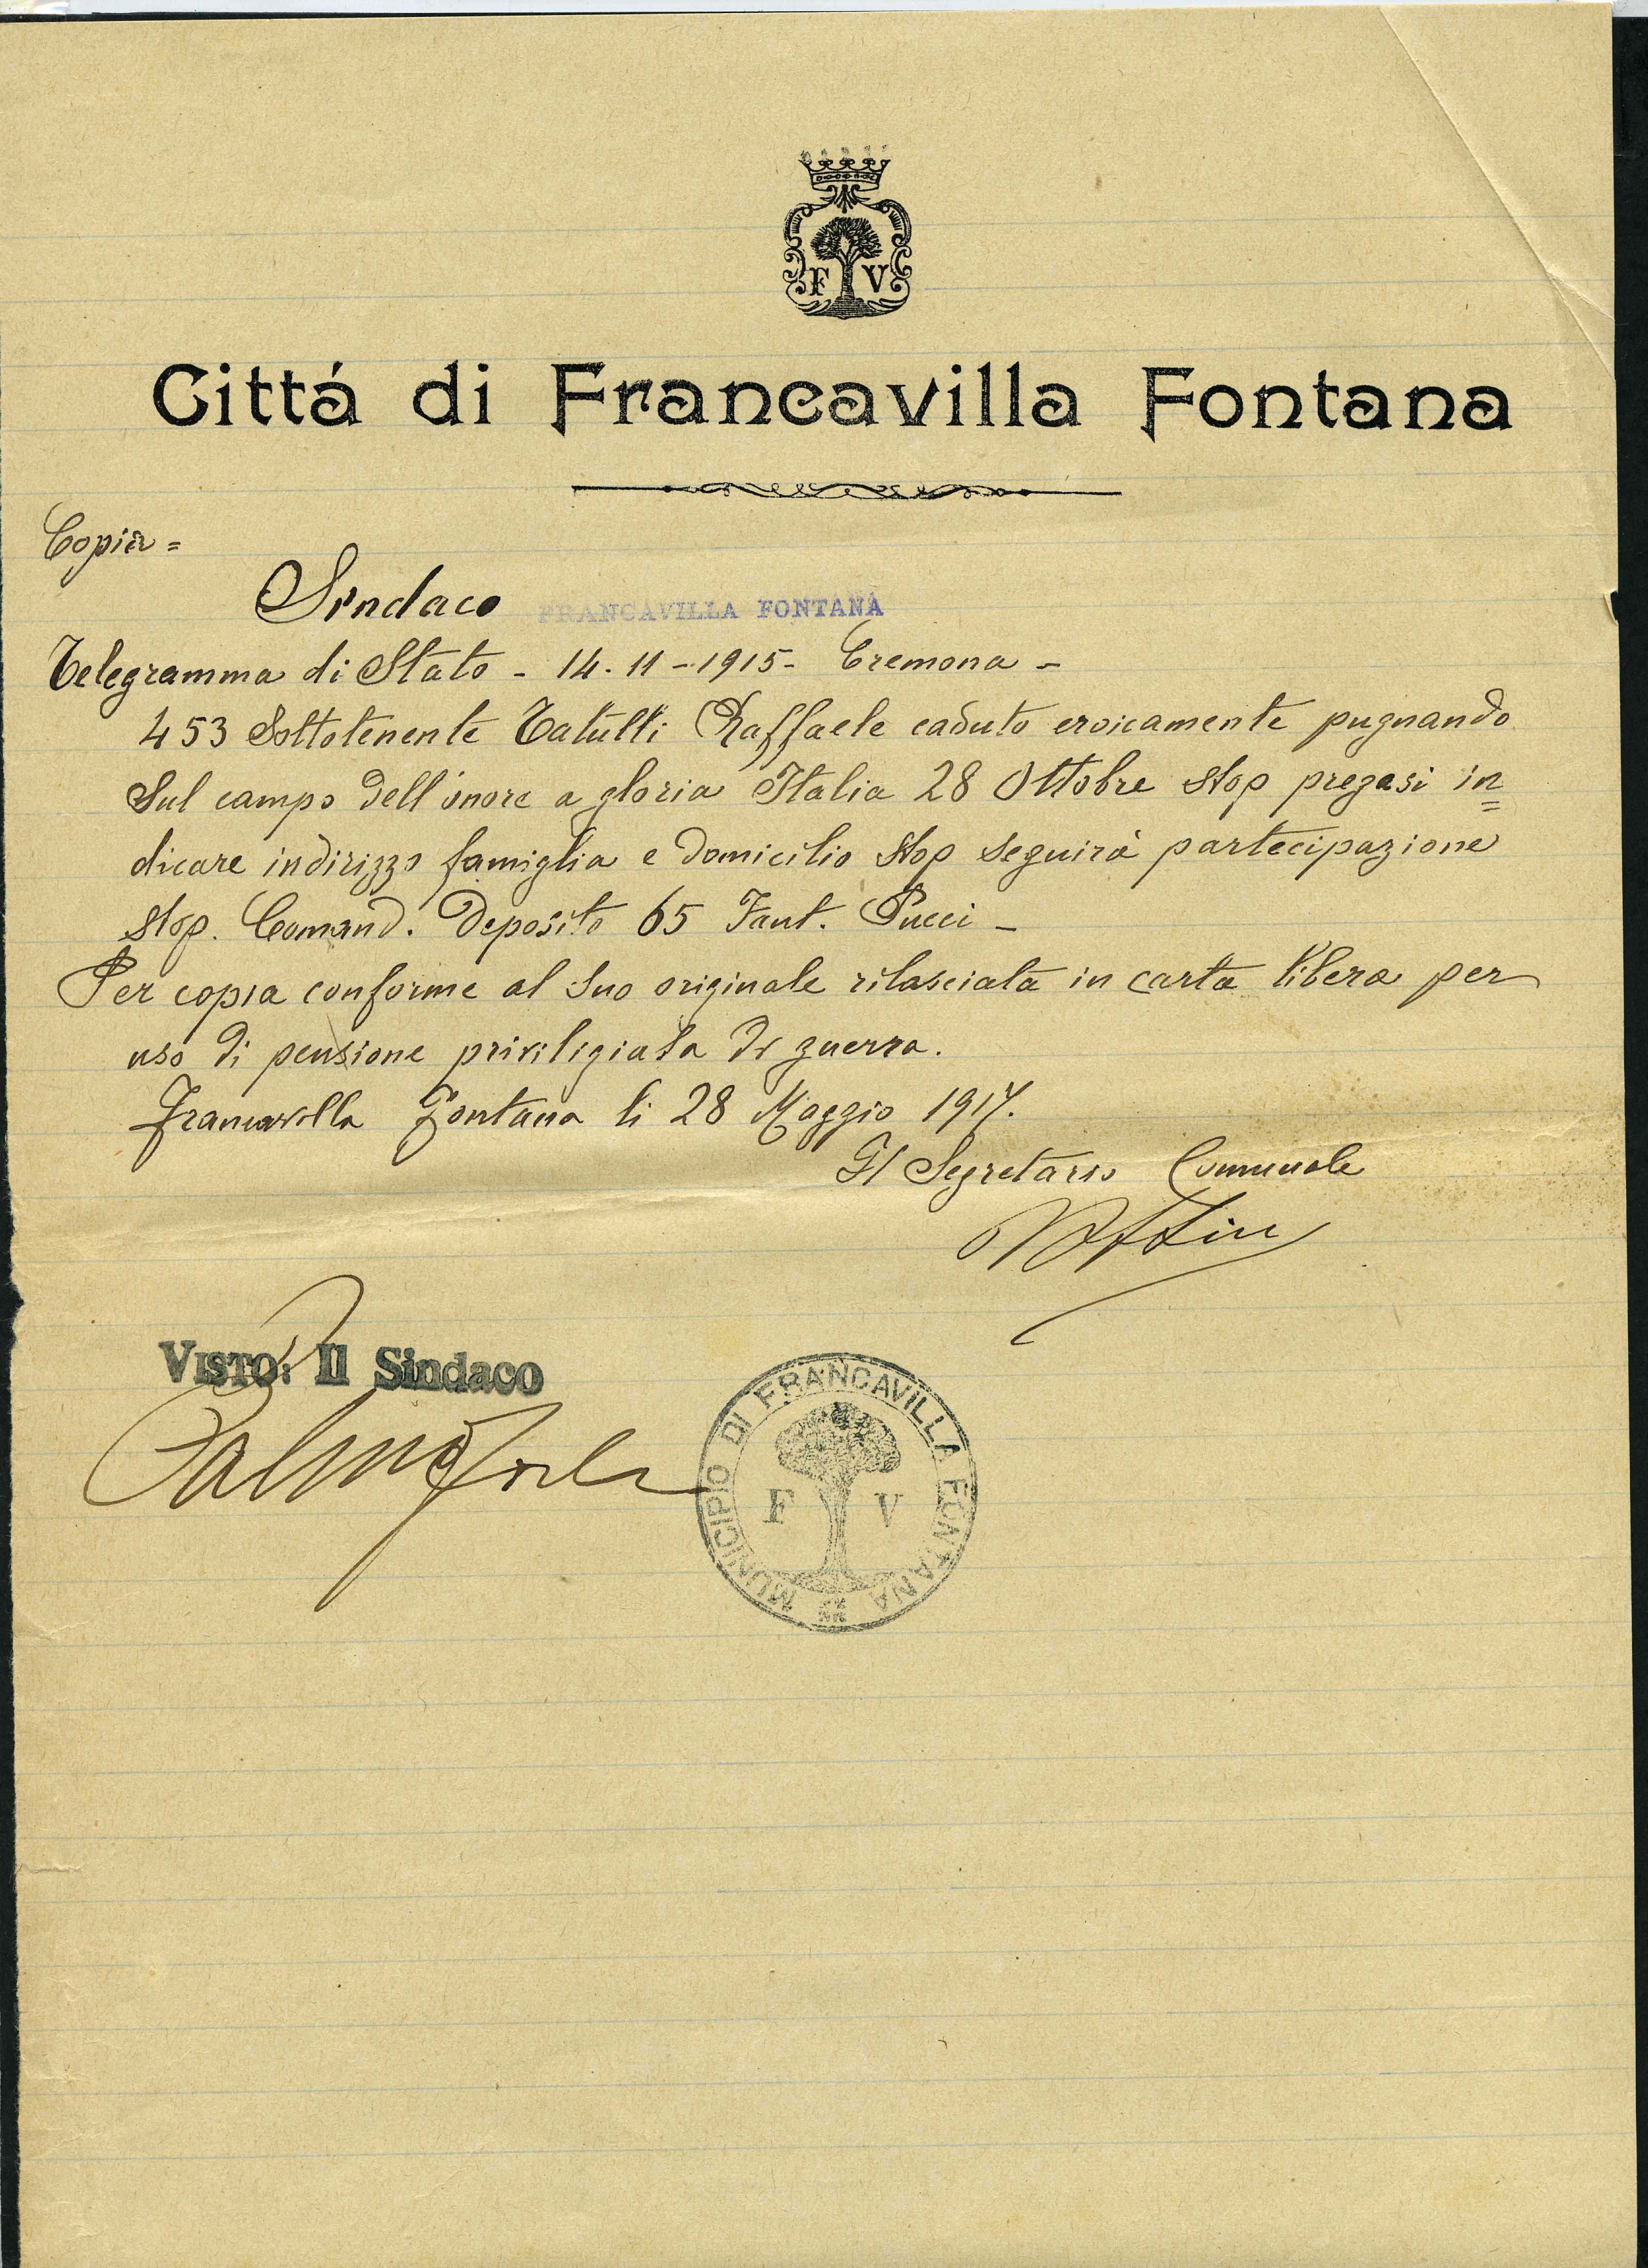 F V
Cittá di Francavilla Fontana
Copia =
Sindaco FRANCAVILLA FONTANA
Telegramma di Stato - 14-11-1915- Cremona -
453 Sottotenente Tatulli Raffaele caduto eroicamente pugnando
sul campo dell'onore a gloria Italia 28 Ottobre stop pregasi in=
dicare indirizzo famiglia e domicilio stop seguirà partecipazione
stop. Comand. Deposito 65 Fant. Pucci -
Per copia conforme al suo originale rilasciata in carta libera per
uso di pensione priviligiata di guerra.
Francavilla Fontana li 28 Maggio 1917.
Il Segretario Comunale
VISTO: Il Sindaco
MUNICIPIO DI FRANCAVILLA FONTANA
F V